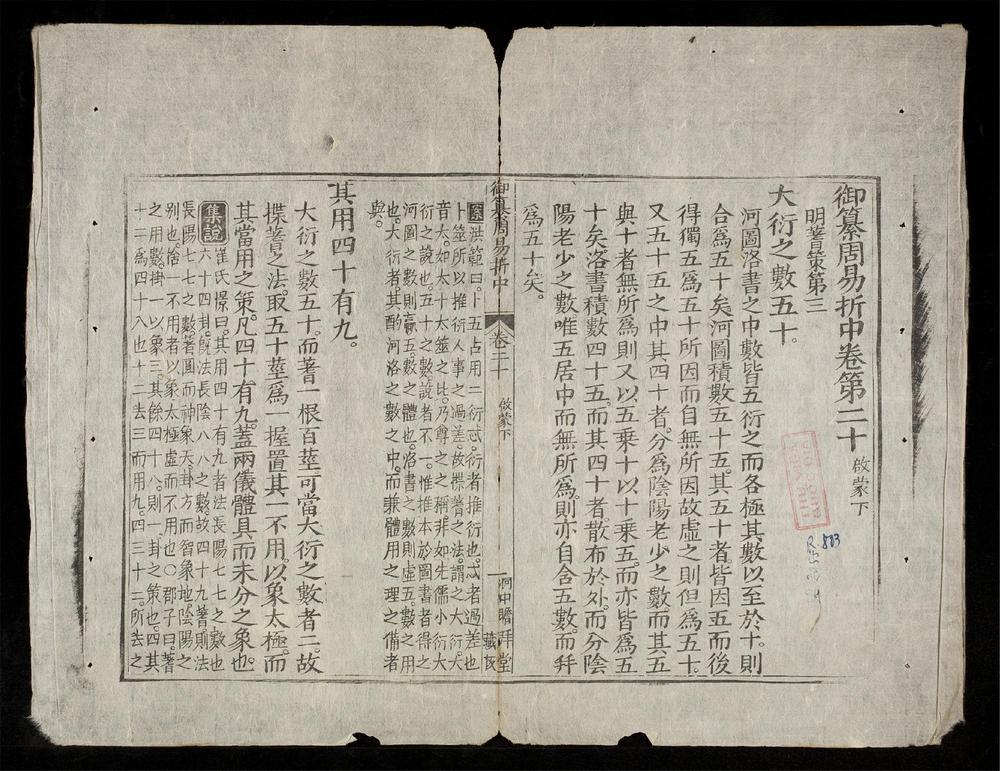 御纂周易折中卷第二十 啟蒙下
明蓍策第三
大衍之數五十。
河圖洛書之中數皆五衍之而各極其數以至於十。則
合爲五十矣。河圖積數五十五。其五十者。皆因五而後
得獨五爲五十所因而自無所因故虛之則但爲五十。
又五十五之中其四十者。分爲陰陽老少之數而其五
與十者無所爲則又以五乘十以十乘五。而亦皆爲五
十矣。洛書積數四十五。而其四十者。散布於外。而分陰
陽老少之數唯五居中而無所爲。則亦自含五數。而幷
爲五十矣。
御纂周易折中 卷二十 啟蒙下 一 洞中瞻拜堂藏板
案洪範曰。卜五占用二衍忒。衍者推衍也。忒者過差也
卜筮所以推衍人事之過差。故揲蓍之法。謂之大衍。大
音太。如太卜太筮之比。乃尊之之稱。非如先儒小衍大
衍之說也。五十之數。說者不一。惟推本於圖書者得之
河圖之數則贏五。數之體也。洛書之數則虛五。數之用
也。大衍者其酌河洛之數之中。而兼體用之理之備者
與。
其用四十有九。
大衍之數五十。而蓍一根百莖可當大衍之數者二。故
揲蓍之法。取五十莖爲一握置其一不用。以象太極。而
其當用之策。凡四十有九。蓋兩儀體具而未分之象也。
集說 崔氏憬曰。其用四十有九者法長陽七七之數也
六十四卦。旣法長陰八八之數。故四十九蓍則法
長陽七七之數。蓍圓而神象天。卦方而智象地。陰陽之
别也。捨一不用者以象太極虛而不用也〇邵子曰。蓍
之用數。掛一以象三。其餘四十八。則一卦之策也。四其
十二爲四十八也十二去三而用九。四三十二。所去之